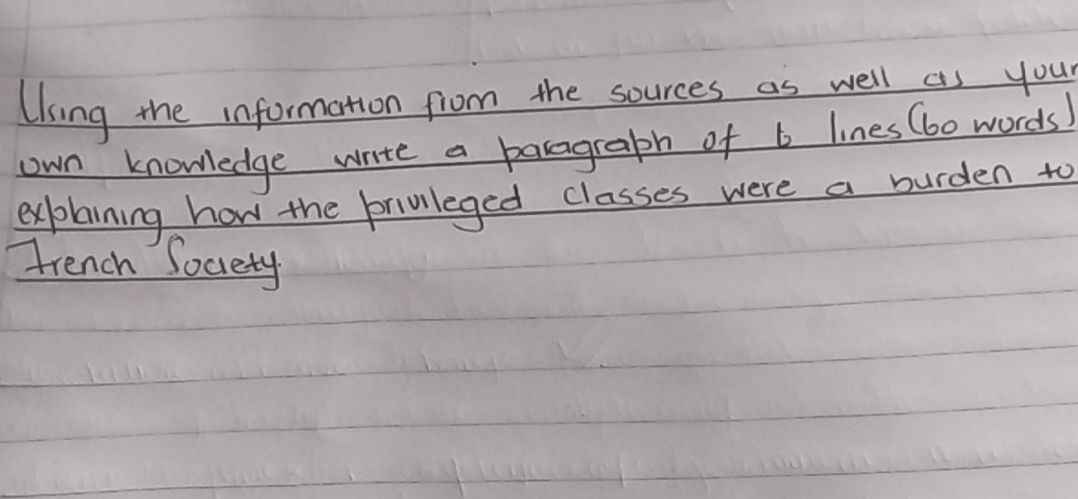 Using the information from the sources as well as your
own knowledge write a paragraph of 6 lines (60 words)
explaining how the privileged classes were a burden to
French Society.